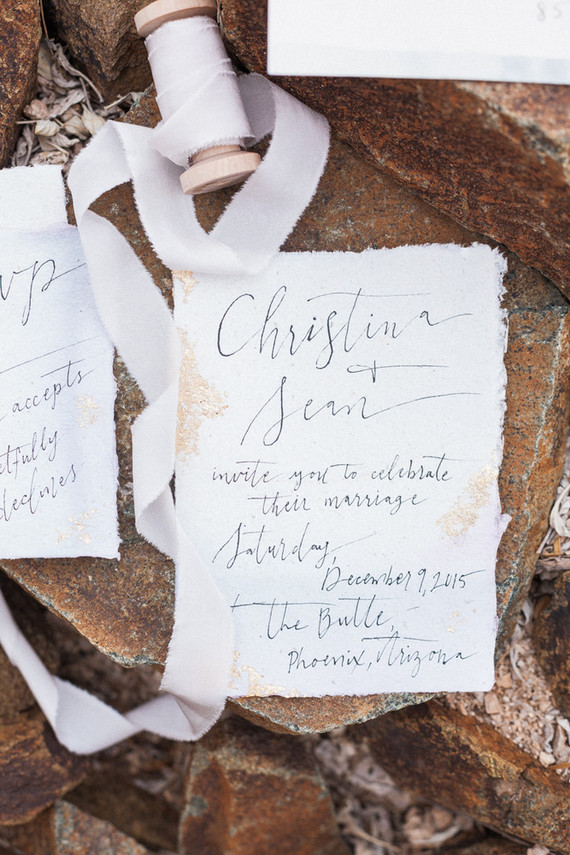 vp
accepts
declines
Christina
+
Sean
invite you to celebrate
their marriage
Saturday,
December 9, 2015
the Butte,
Phoenix, Arizona